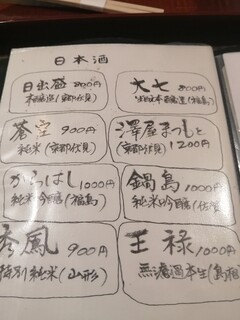 日本酒
日出盛 800円
本醸造(京都伏見)
大七 800円
生酛本醸造(福島)
蒼空 900円
純米(京都伏見)
澤屋まつもと
(京都伏見) 1200円
からはし 1000円
純米吟醸(福島)
鍋島 1000円
純米吟醸(佐賀
秀風 900円
特別純米(山形)
王祿 1000円
無濾過本生(島根